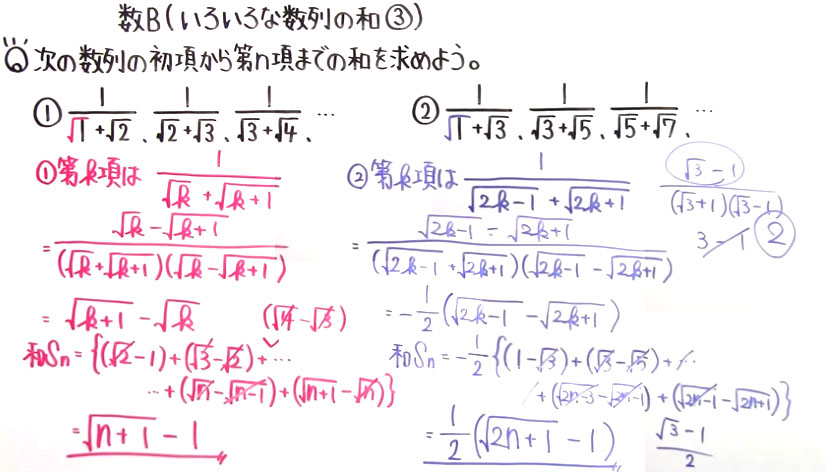 数B(いろいろな数列の和③)
次の数列の初項から第n項までの和を求めよう。
① 1/(√1+√2)、1/(√2+√3)、1/(√3+√4)、…
② 1/(√1+√3)、1/(√3+√5)、1/(√5+√7)、…
①第k項は 1/(√k+√(k+1))
= (√k-√(k+1))/((√k+√(k+1))(√k-√(k+1)))
= √(k+1)-√k (√4-√3)
和Sn={(√2-1)+(√3-√2)+…
…+(√n-√(n-1))+(√(n+1)-√n)}
=√(n+1)-1
②第k項は 1/(√(2k-1)+√(2k+1))
= (√(2k-1)-√(2k+1))/((√(2k-1)+√(2k+1))(√(2k-1)-√(2k+1)))
=-1/2(√(2k-1)-√(2k+1))
和Sn=-1/2{(1-√3)+(√3-√5)+…
+(√(2n-3)-√(2n-1))+(√(2n-1)-√(2n+1))}
=1/2(√(2n+1)-1)
(√3-1)/((√3+1)(√3-1))
3-1 2
(√3-1)/2